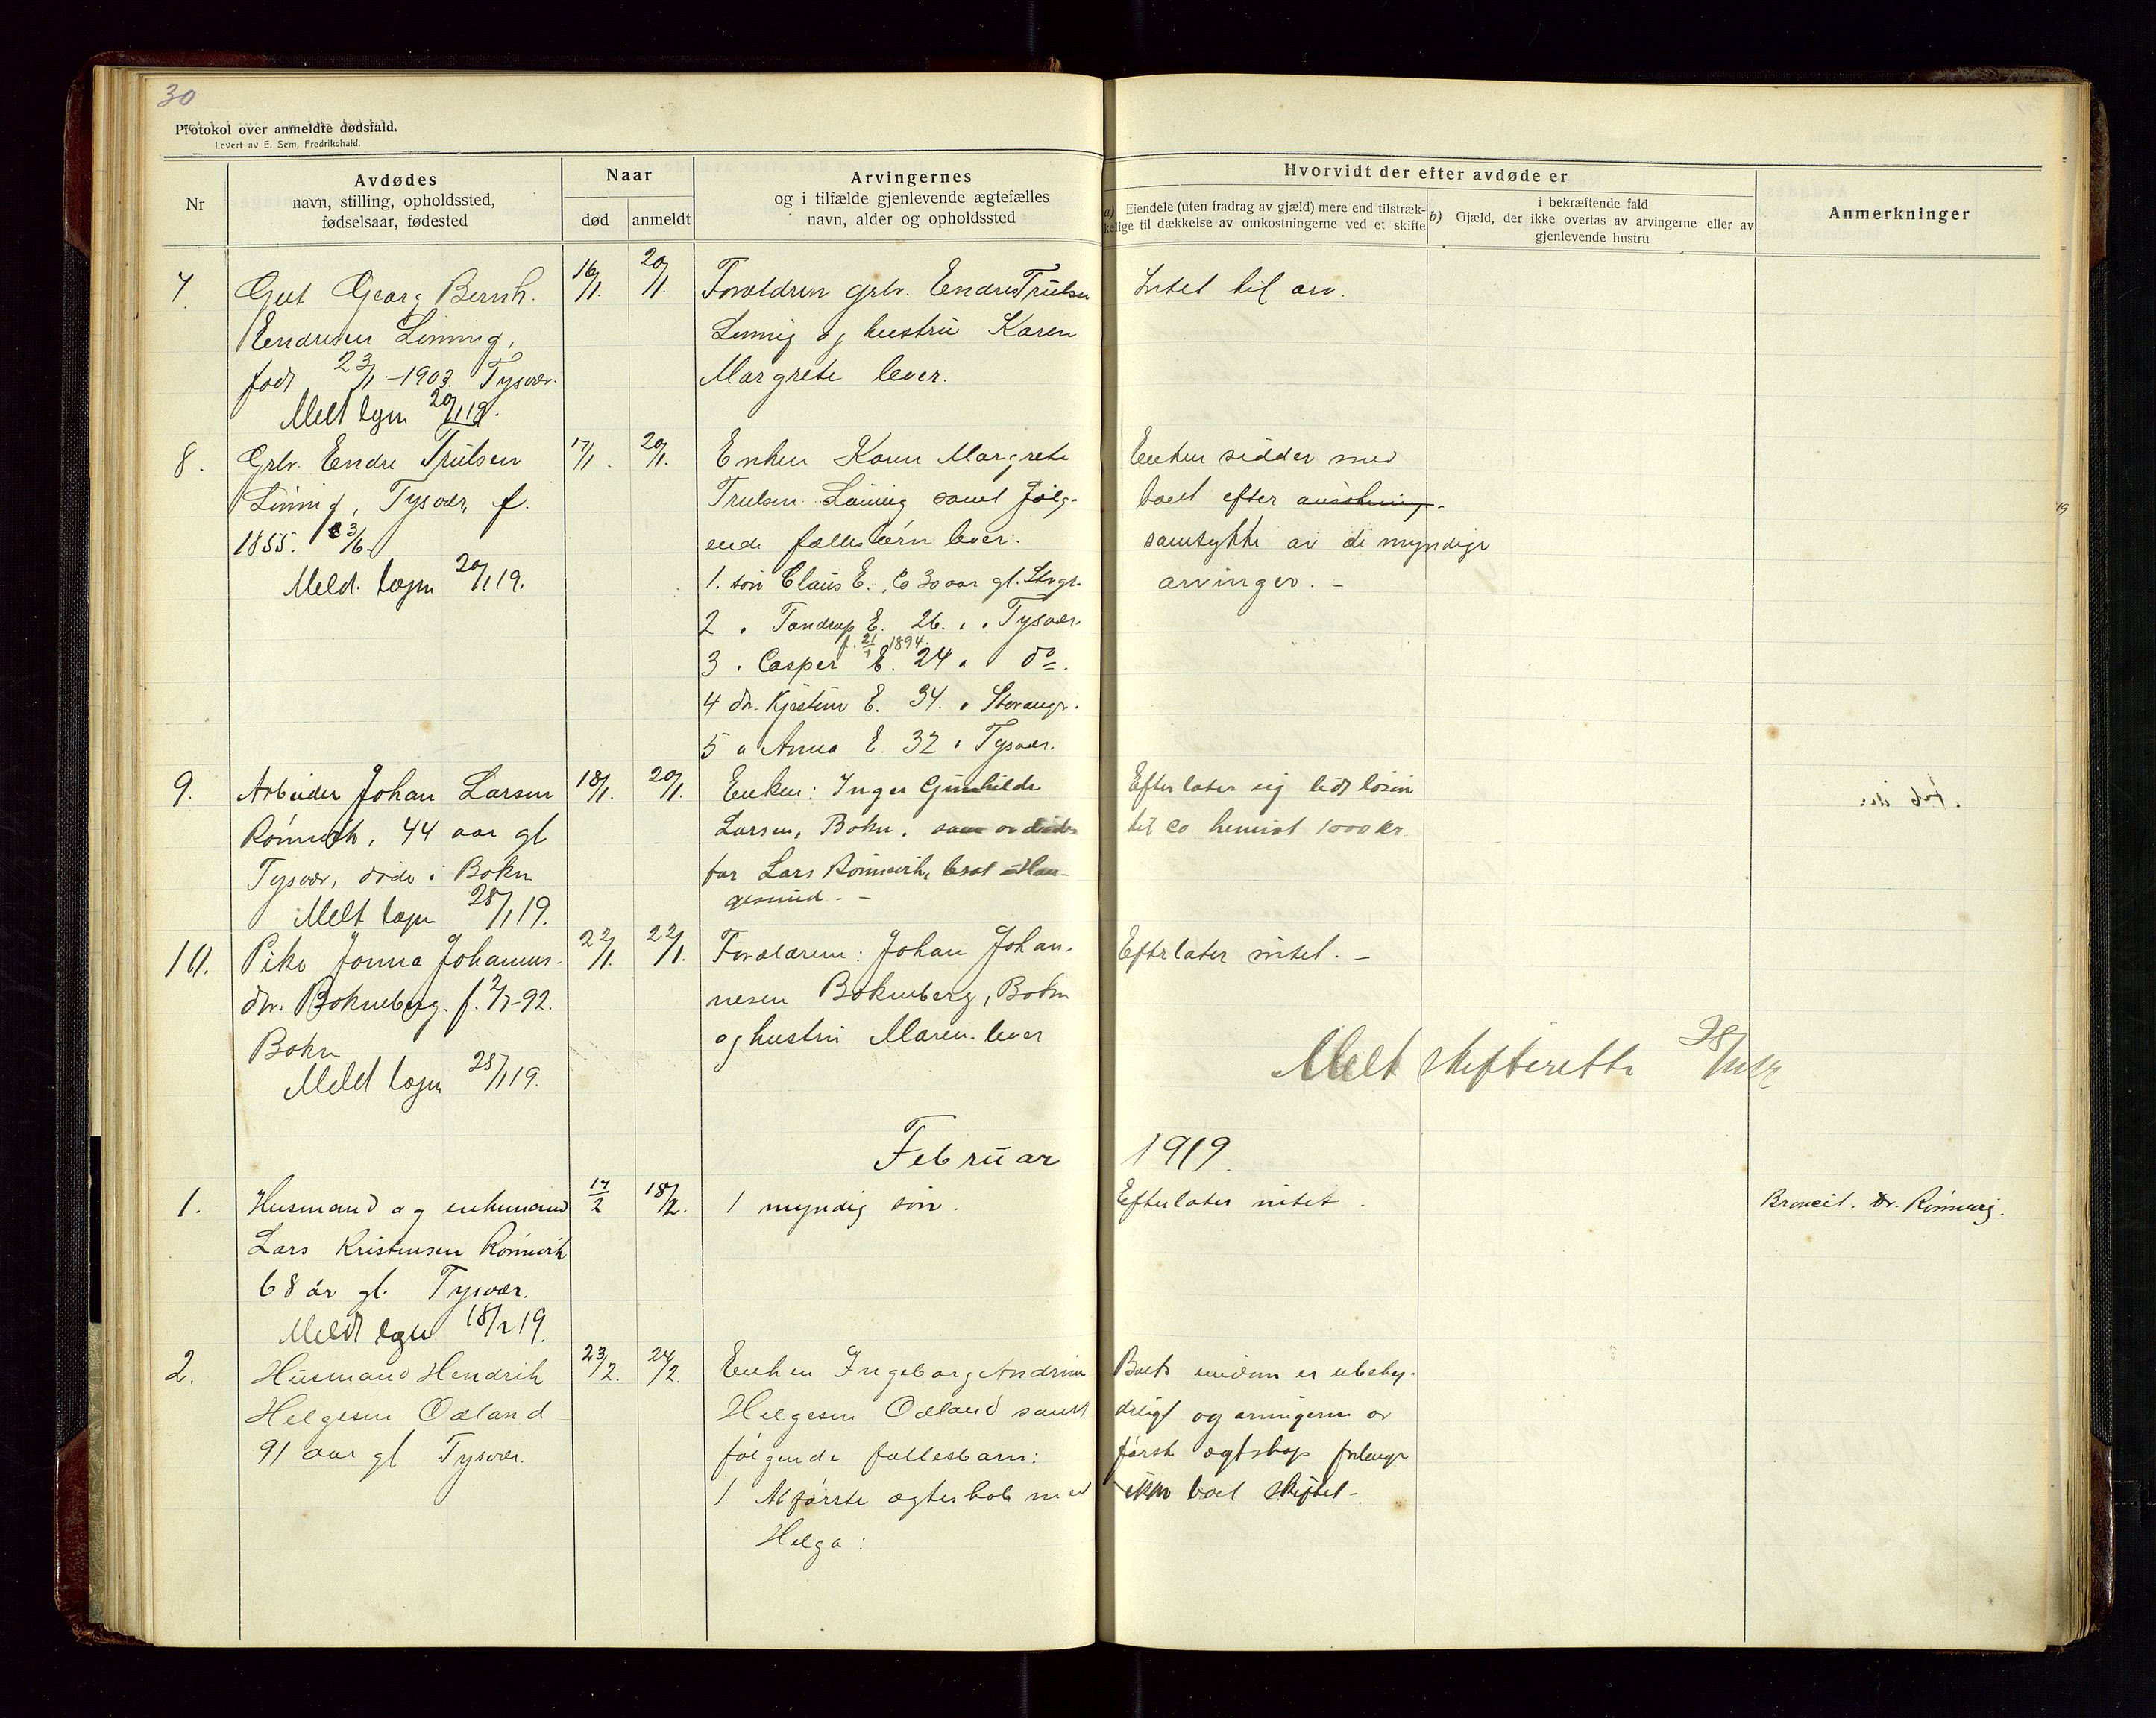 30
Protokol over anmeldte dødsfald.
Levert av E. Sem, Fredrikshald.
Nr
Avdødes
navn, stilling, opholdssted,
fødselsaar, fødested
Naar
død
anmeldt
Arvingernes
og i tilfælde gjenlevende ægtefælles
navn, alder og opholdssted
Hvorvidt der efter avdøde er
a) Eiendele (uten fradrag av gjæld) mere end tilstræk-
kelige til dækkelse av omkostningerne ved et skifte
i bekræftende fald
b) Gjæld, der ikke overtas av arvingerne eller av
gjenlevende hustru
Anmerkninger
7
Gut Georg Bernh.
Endresen
født 23/1-1903. Tysvær.
Melt 20/1 19.
16/1.
20/1.
Forældren grbr. Endre Trulsen
og hustru Karen
Margrete lever.
Intet til arv.
8.
Grbr. Endre Trulsen
Tysvær, f.
1855.
Meld. 20/1 19.
17/1.
20/1.
Enken Karen Margrete
Trulsen samt følg-
ende fællesbørn lever.
1. søn Claus E. Co 30 aar gl. Stvgr.
2 " Tandrup E. 26. " " Tysvær.
f. 21/1 1894.
3 " Casper E. 24 " " do.
4 dtr. Kjestine E. 34. " Stavangr.
5 " Anna E. 32 " Tysvær.
Enken sidder med
boet efter
samtykke av de myndige
arvinger. -
9.
Arbeider Johan Larsen
Rønnevik, 44 aar gl
Tysvær, døde i Bokn
Melt 28/1 19.
18/1.
20/1.
Enken: Inger Gunhilde
Larsen, Bokn.
far Lars Rønnevik, Hau-
gesund. -
Efterlater sig lidt løsøre
til ca 1000 kr.
10.
Pike Jonna Johannes-
dtr. Bokneberg. f. 2/7-92.
Bokn
Meldt 28/1 19.
22/1.
22/1.
Forældrene: Johan Johan-
nesen Bokneberg, Bokn
og hustru Maren. lever
Efterlater intet. -
Melt skifteretten 28/1
Februar 1919.
1.
Husmand og enkemand
Lars Kristensen Rønnevik
68 år gl. Tysvær.
Meldt 18/2 19.
17/2
18/2.
1 myndig søn.
Efterlater intet.
Rønnevig.
2.
Husmand Hendrik
Helgesen Odland
91 aar gl Tysvær.
23/2.
24/2.
Enken Ingeborg Andrine
Helgesen Odland samt
følgende fællesbarn:
1. Af første ægteskab med
Helga:
Boets eiendom er ubety-
deligt og arvingerne av
første ægtskap forlanger
ikke boet skiftet -